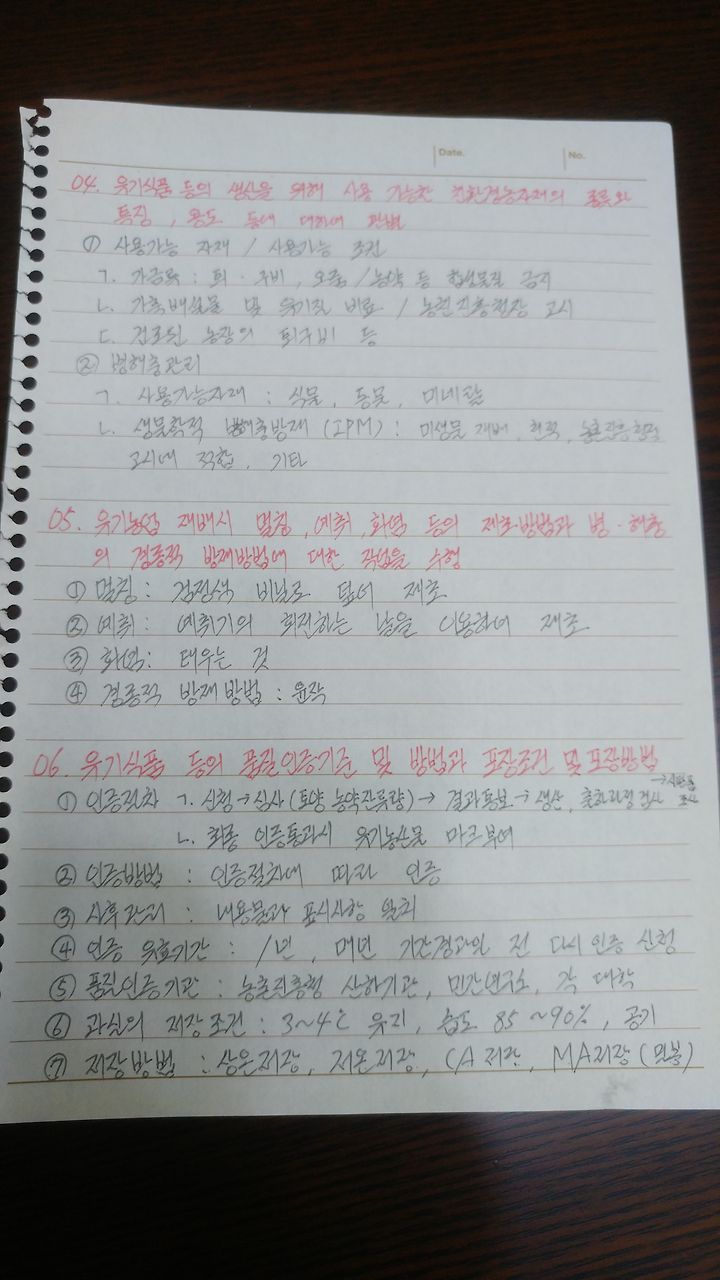 Date.
No.
04. 유기식품 등의 생산을 위해 사용 가능한 친환경농자재의 종류와
특징, 용도 등에 대하여 판별
① 사용가능 자재 / 사용가능 조건
ㄱ. 가금류 : 퇴·구비, 오줌 / 농약 등 합성물질 금지
ㄴ. 가축배설물 및 유기질 비료 / 농촌진흥청장 고시
ㄷ. 건조된 농장의 퇴구비 등
② 병해충관리
ㄱ. 사용가능자재 : 식물, 동물, 미네랄
ㄴ. 생물학적 병해충방재 (IPM) : 미생물 재배, 천적, 농촌진흥청장
고시에 적합, 기타
05. 유기농업 재배시 멀칭, 예취, 화염 등의 제초방법과 병·해충
의 경종적 방재방법에 대한 작업을 수행
① 멀칭 : 검정색 비닐로 덮어 제초
② 예취 : 예취기의 회전하는 날을 이용하여 제초
③ 화염 : 태우는 것
④ 경종적 방재방법 : 윤작
06. 유기식품 등의 품질인증기준 및 방법과 포장조건 및 포장방법
① 인증절차 ㄱ. 신청→심사(토양 농약잔류량)→ 결과통보→생산, 출하과정 검사 →시판품 조사
ㄴ. 최종 인증통과시 유기농산물 마크부여
② 인증방법 : 인증절차에 따라 인증
③ 사후관리 : 내용물과 표시사항 일치
④ 인증 유효기간 : 1년, 매년 기간경과일 전 다시 인증 신청
⑤ 품질인증기관 : 농촌진흥청 산하기관, 민간연구소, 각 대학
⑥ 과실의 저장조건 : 3~4℃ 유지, 습도 85~90%, 공기
⑦ 저장방법 : 상온저장, 저온저장, CA저장, MA저장(밀봉)